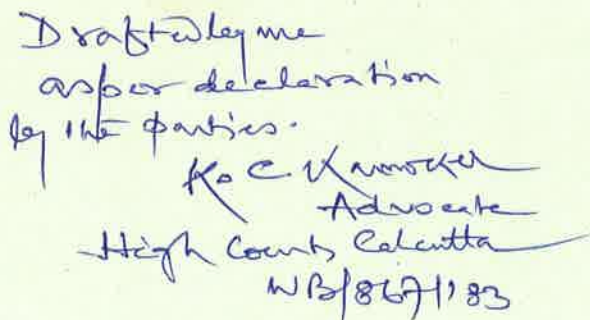 Drafted by me
as per declaration
by the parties.
K. C. Karmakar
Advocate
High Court, Calcutta
WB/867/'83